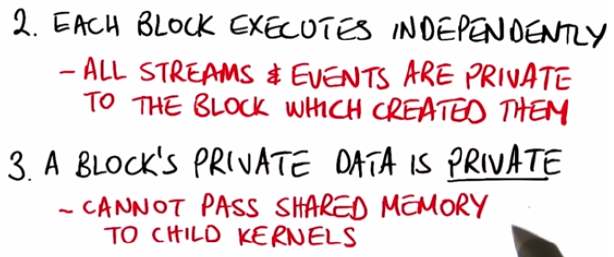 2. EACH BLOCK EXECUTES INDEPENDENTLY
- ALL STREAMS & EVENTS ARE PRIVATE
TO THE BLOCK WHICH CREATED THEM
3. A BLOCK'S PRIVATE DATA IS PRIVATE
- CANNOT PASS SHARED MEMORY
TO CHILD KERNELS